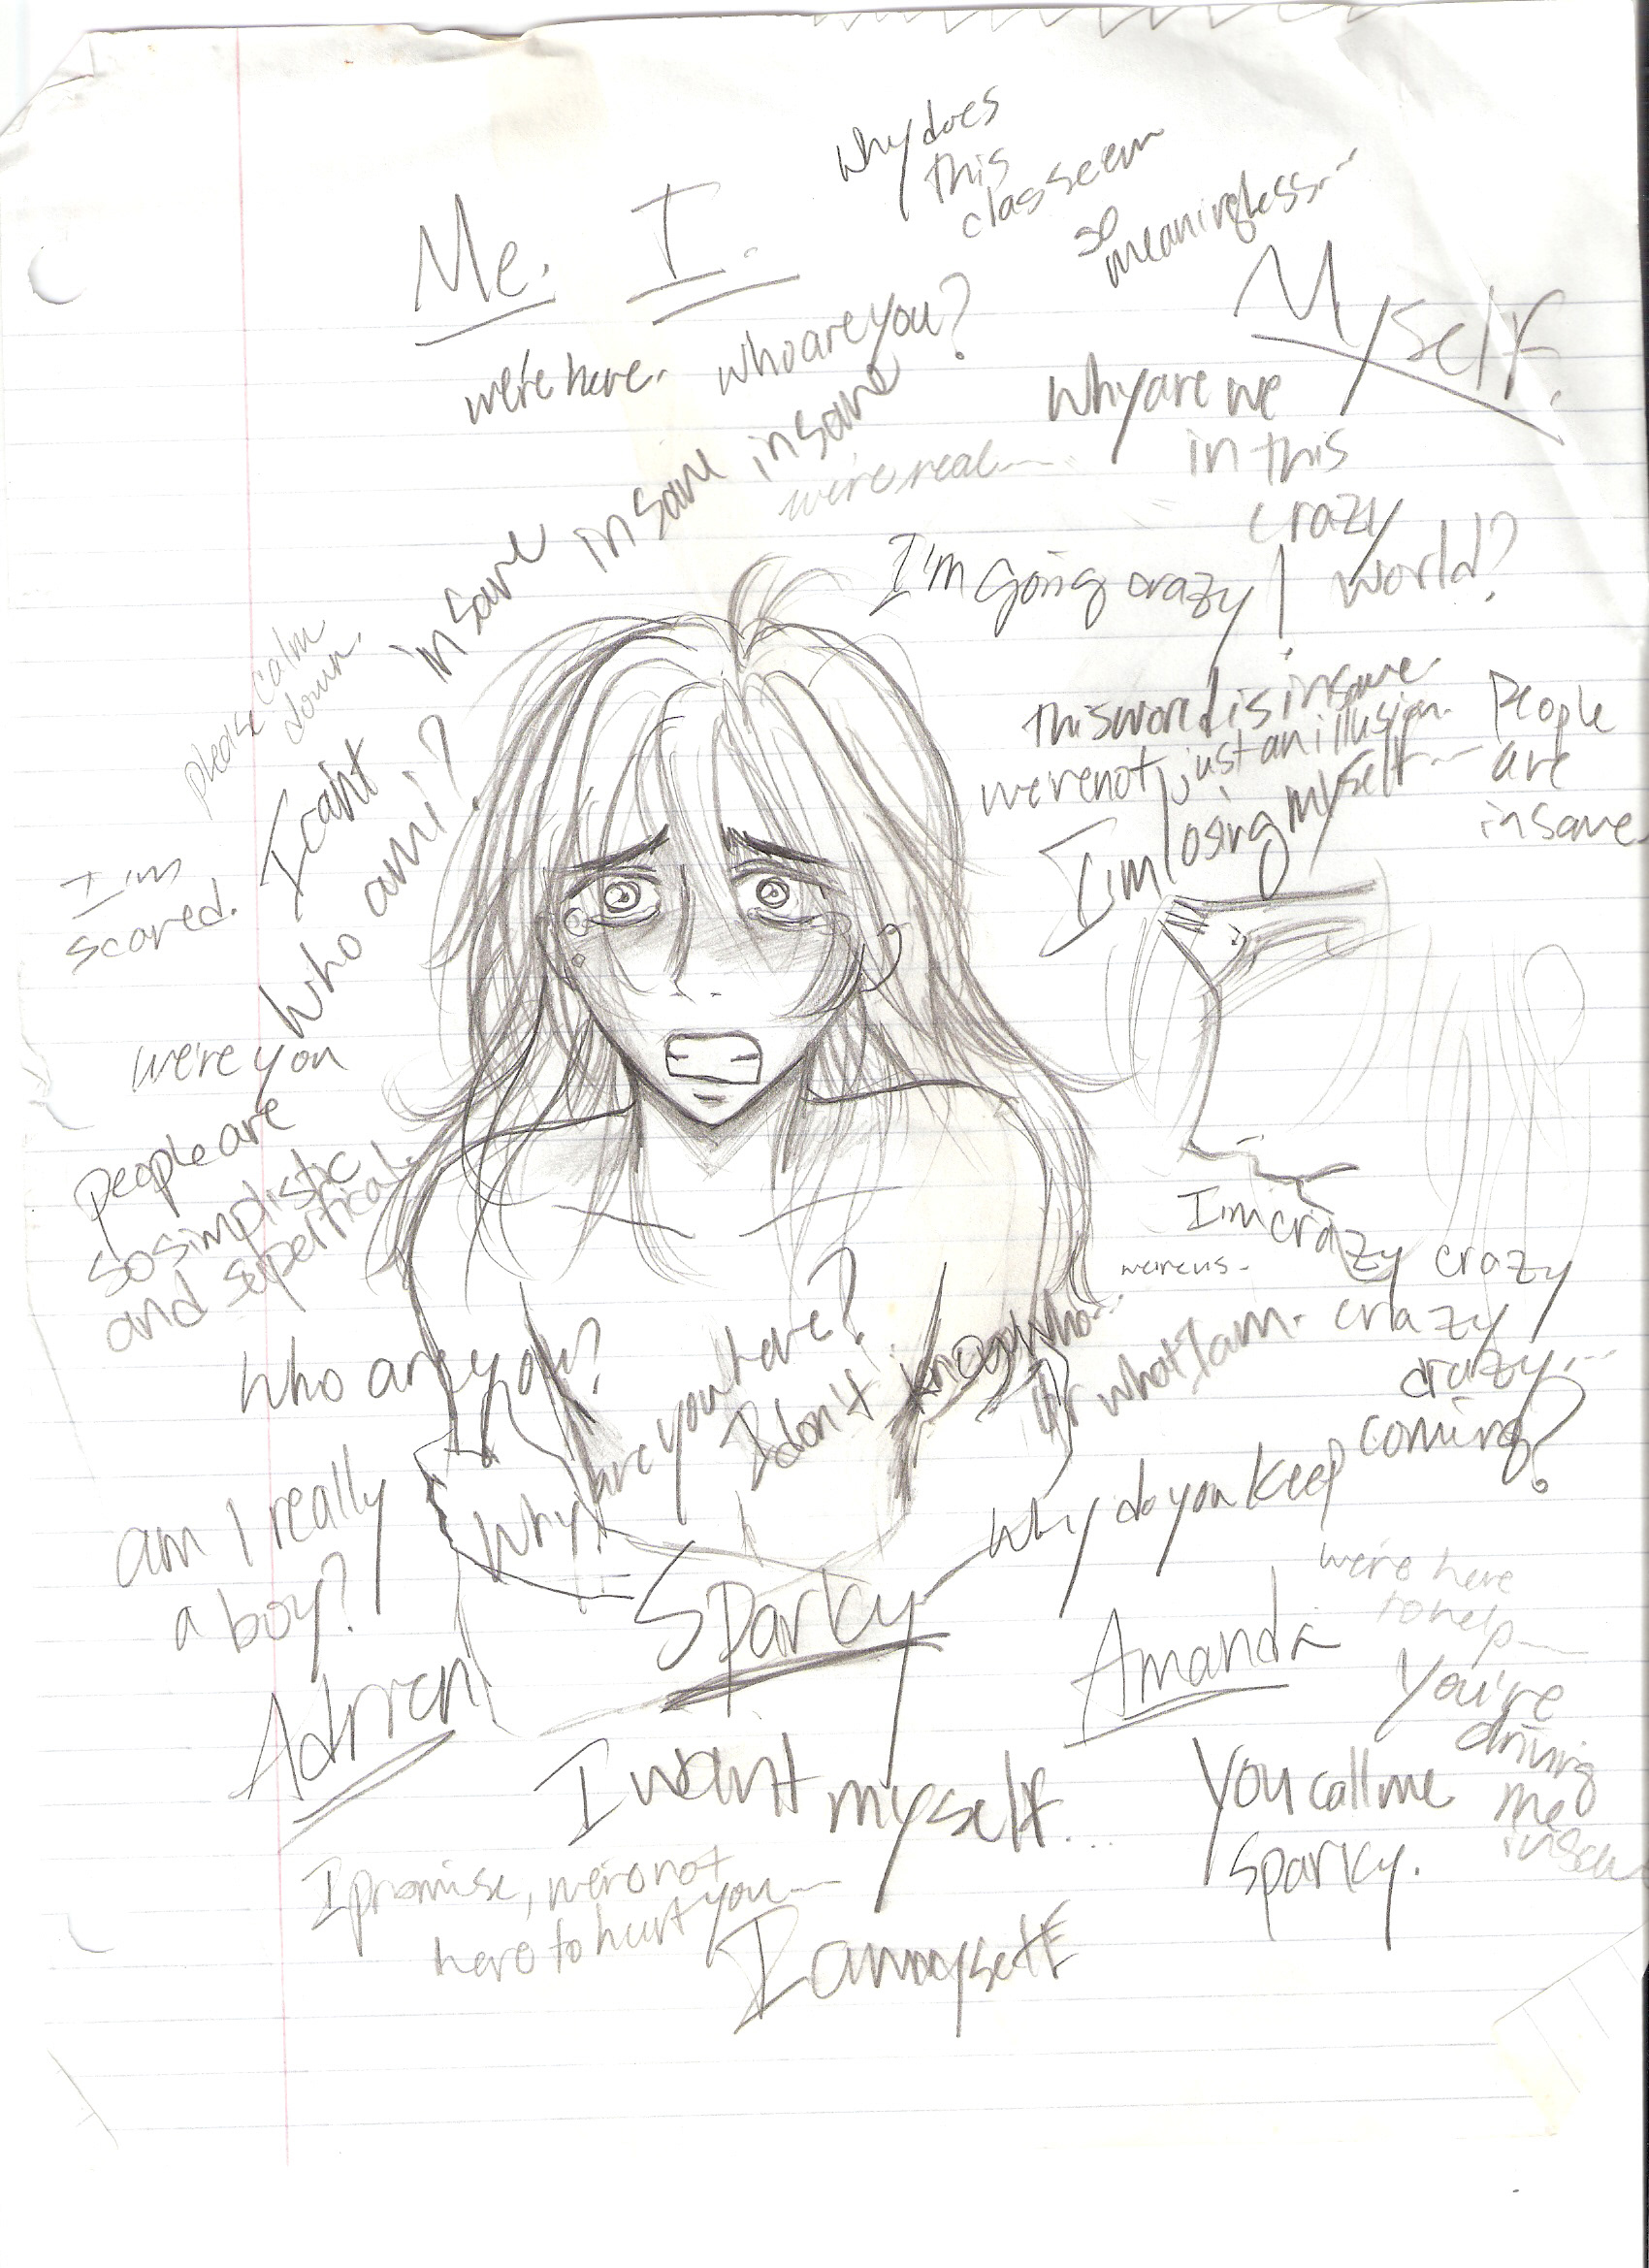 why does
this
class seem
so
meaningless...
Me. I.
Myself.
we're here. who are you?
why are we
in this
crazy
world?
I can't insane insane insane insane
we're real...
I'm going crazy!
please calm
down.
this world is insane.
we're not just an illusion.
I'm losing myself...
people
are
insane
I'm
scared.
who am i?
we're you
people are
so simplistic
and superficial.
I'm crazy crazy
crazy
crazy...
we're us.
who are you?
why are you here?
I don't know who...
or what I am.
why do you keep coming?
am I really
a boy?
Sparky
Adrien
Amanda
we're here
to help...
You're
driving
me
I want myself...
You call me
Sparky.
I promise, we're not
here to hurt you...
I am myself